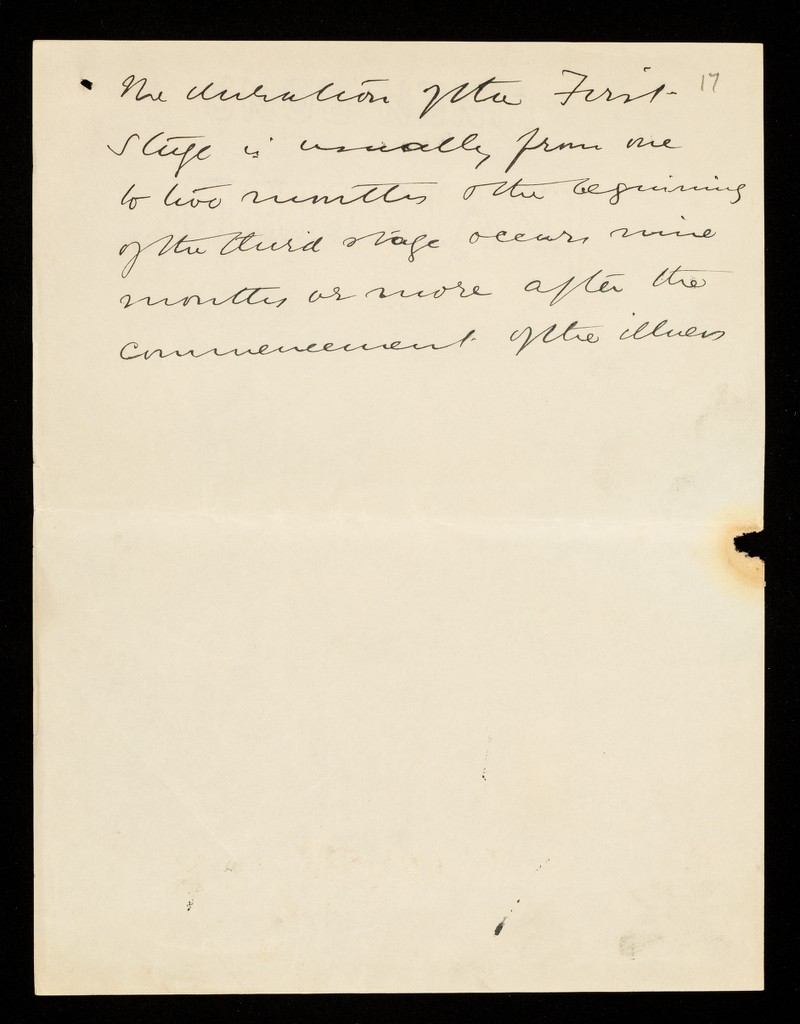 The duration of the First 17
Stage is usually from one
to two months & the beginning
of the third stage occurs nine
months or more after the
commencement of the illness